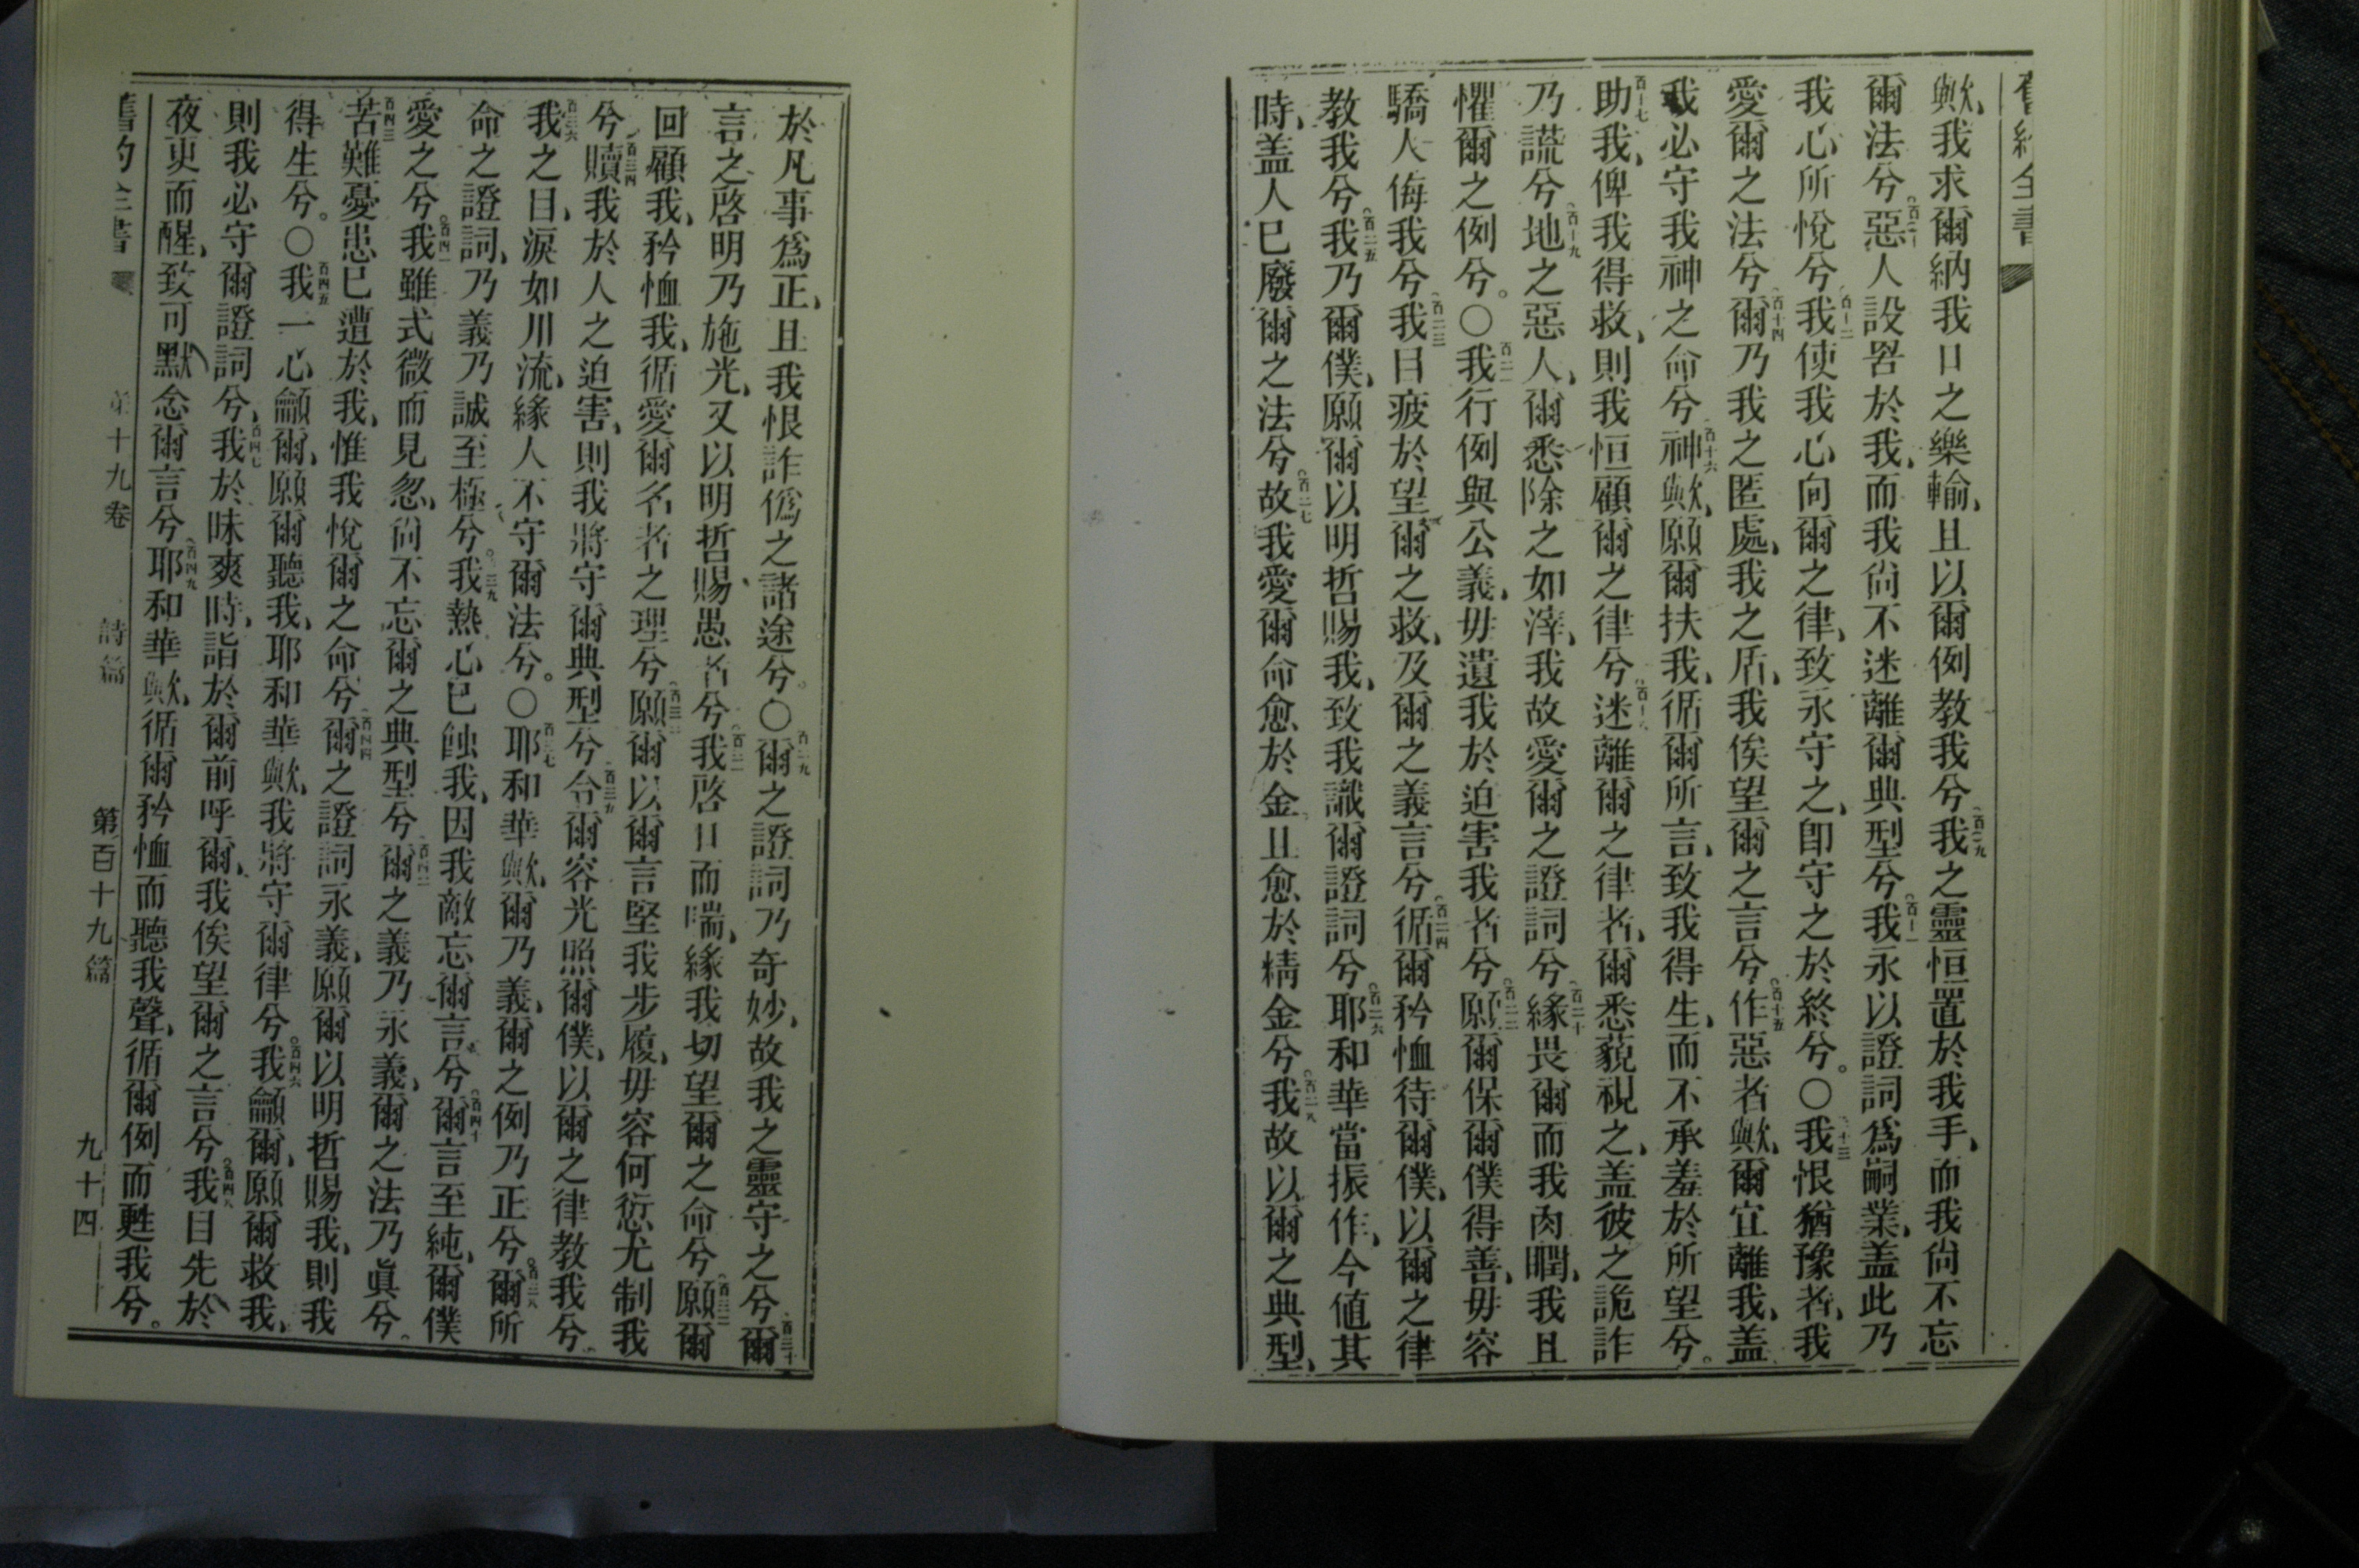 舊約全書
歟、我求爾納我口之樂輸、且以爾例教我兮、百〇九我之靈恒置於我手、而我尙不忘
爾法兮、百一十惡人設罟於我、而我尙不迷離爾典型兮、百十一我永以證詞爲嗣業、盖此乃
我心所悅兮、百十二我使我心向爾之律、致永守之、卽守之於終兮。〇百十三我恨猶豫者、我
愛爾之法兮、百十四爾乃我之匿處、我之盾、我俟望爾之言兮、百十五作惡者歟、爾宜離我、盖
我必守我神之命兮、百十六神歟、願爾扶我、循爾所言、致我得生、而不承羞於所望兮。
百十七助我、俾我得救、則我恒顧爾之律兮、百十八迷離爾之律者、爾悉藐視之、盖彼之詭詐
乃謊兮、百十九地之惡人、爾悉除之如滓、我故愛爾之證詞兮、百二十緣畏爾而我肉瞤、我且
懼爾之例兮。〇百二一我行例與公義、毋遺我於迫害我者兮、百二二願爾保爾僕得善、毋容
驕人侮我兮、百二三我目疲於望爾之救、及爾之義言兮、百二四循爾矜恤待爾僕、以爾之律
教我兮、百二五我乃爾僕、願爾以明哲賜我、致我識爾證詞兮、百二六耶和華當振作、今值其
時、盖人已廢爾之法兮、百二七故我愛爾命愈於金、且愈於精金兮、百二八我故以爾之典型、
於凡事爲正、且我恨詐僞之諸途兮。〇百二九爾之證詞乃奇妙、故我之靈守之兮、百三十爾
言之啓明乃施光、又以明哲賜愚者兮、百三一我啓口而喘、緣我切望爾之命兮、百三二願爾
回顧我、矜恤我、循愛爾名者之理兮、百三三願爾以爾言堅我步履、毋容何愆尤制我
兮、百三四贖我於人之迫害、則我將守爾典型兮、百三五令爾容光照爾僕、以爾之律教我兮、
百三六我之目、淚如川流、緣人不守爾法兮。〇百三七耶和華歟、爾乃義、爾之例乃正兮。百三八爾所
命之證詞、乃義乃誠至極兮。百三九我熱心已蝕我、因我敵忘爾言兮、百四十爾言至純、爾僕
愛之兮。百四一我雖式微而見忽、尙不忘爾之典型兮、百四二爾之義乃永義、爾之法乃眞兮。
百四三苦難憂患已遭於我、惟我悅爾之命兮、百四四爾之證詞永義、願爾以明哲賜我、則我
得生兮。〇百四五我一心籲爾、願爾聽我、耶和華歟、我將守爾律兮。百四六我籲爾、願爾救我、
則我必守爾證詞兮、百四七我於昧爽時、詣於爾前呼爾、我俟望爾之言兮、百四八我目先於
夜更而醒、致可默念爾言兮、百四九耶和華歟、循爾矜恤而聽我聲、循爾例而甦我兮。
舊約全書 第十九卷 詩篇 第百十九篇 九十四